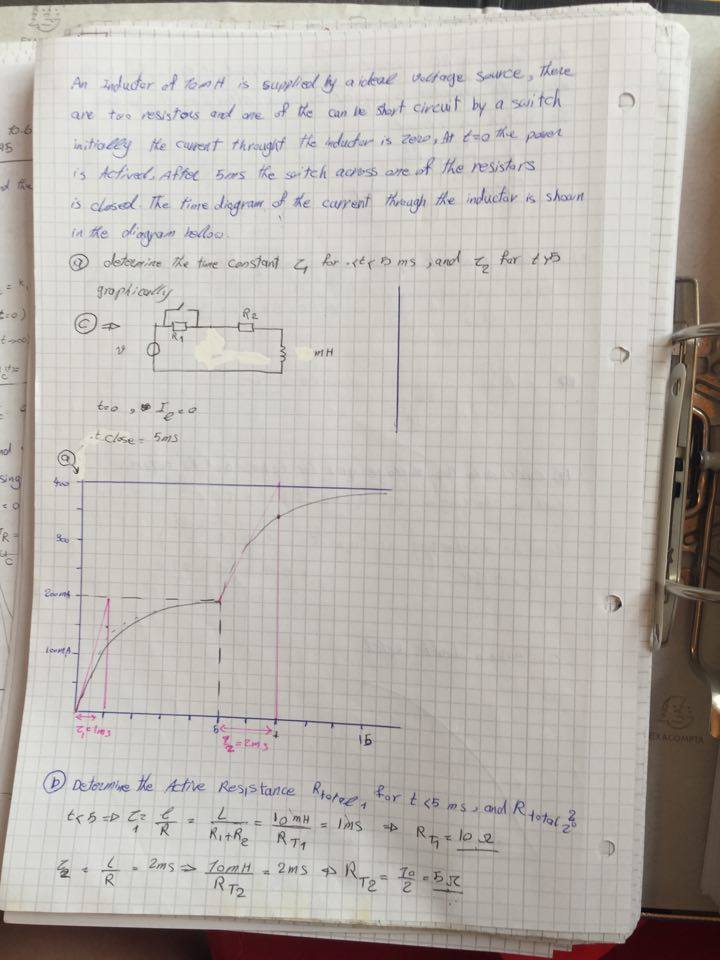 An Inductor of 10mH is supplied by a ideal voltage source, There
are two resistors and one of the can be short circuit by a switch
initially the current throught the inductor is Zero, At t=0 the power
is Actived. After 5ms the switch across one of the resistors
is closed. The time diagram of the current through the inductor is shown
in the diagram bellow.
(a) determine the time constant τ1 for <t< 5 ms, and τ2 for t>5
graphically
(C) ⇒
R1
R2
v
mH
t=0, I_l=0
t close = 5ms
(a)
400
300
200mA
100mA
5
15
τ1=1ms
τ2=2ms
(b) Determine the Active Resistance Rtotal1 for t<5 ms, and Rtotal2
t<5 ⇒ τ= l/R = L/(R1+R2) = 10mH/RT1 = 1ms ⇒ RT1 = 10 Ω
τ2 = L/R = 2ms ⇒ 10mH/RT2 = 2ms ⇒ RT2 = 10/2 = 5Ω
EXACOMPTA